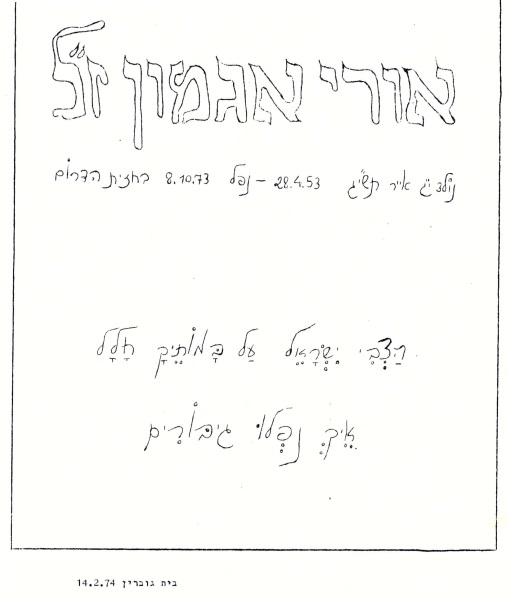 אורי אגמון ז"ל
נולד י"ג אייר תשי"ג 28.4.53 – נפל 8.10.73 בחזית הדרום
הַצְּבִי יִשְׂרָאֵל עַל בָּמוֹתֶיךָ חָלָל
אֵיךְ נָפְלוּ גִיבּוֹרִים
בית גוברין 14.2.74